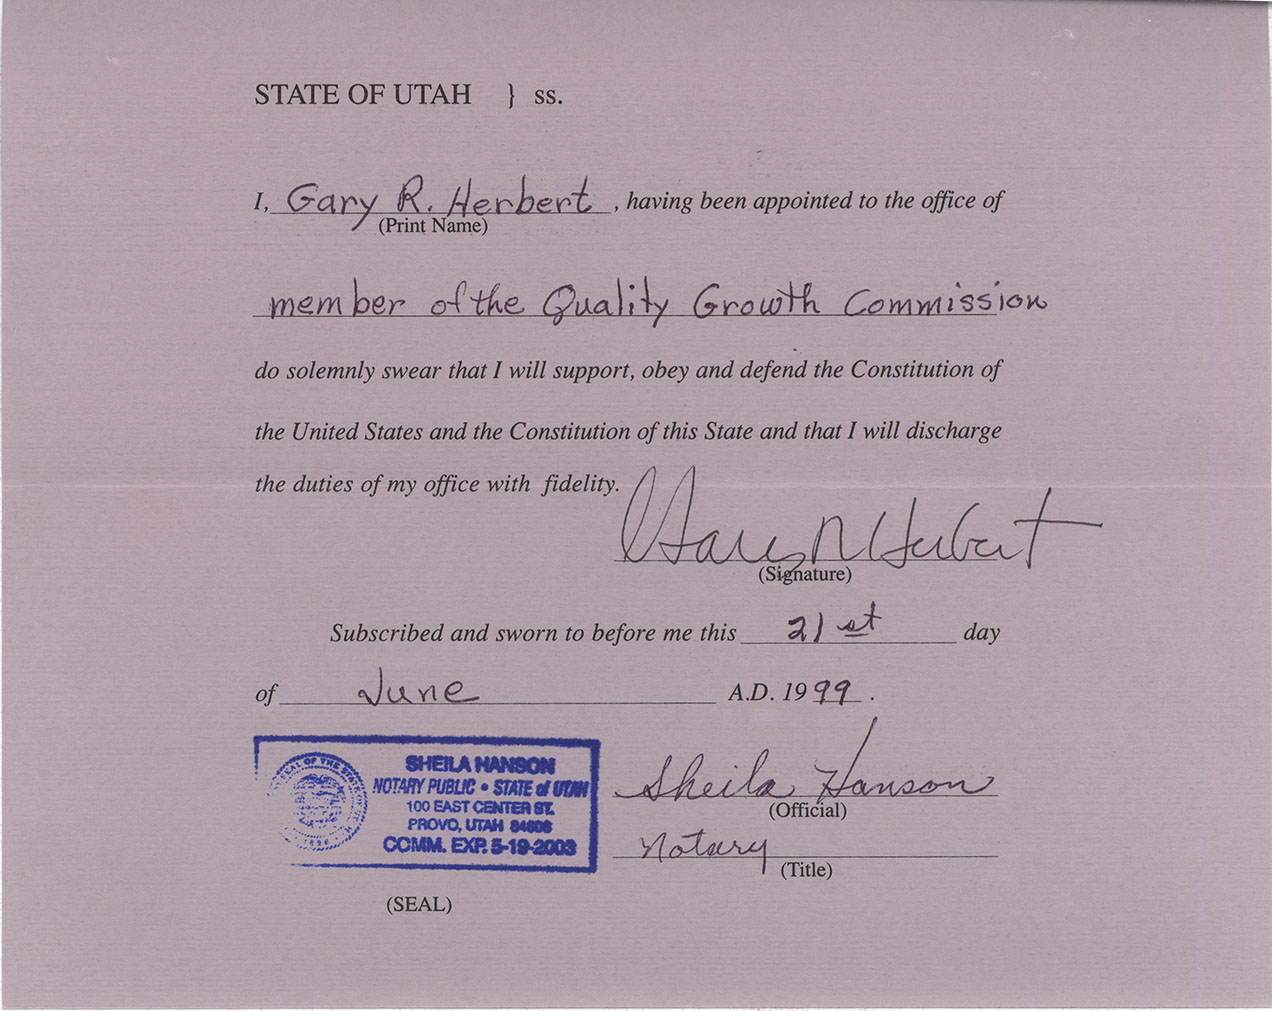 STATE OF UTAH } ss.
I, Gary R. Herbert, having been appointed to the office of
(Print Name)
member of the Quality Growth Commission
do solemnly swear that I will support, obey and defend the Constitution of
the United States and the Constitution of this State and that I will discharge
the duties of my office with fidelity.
Gary R Herbert
(Signature)
Subscribed and sworn to before me this 21st day
of June A.D. 1999.
SEAL OF THE STATE OF
1896
SHEILA HANSON
NOTARY PUBLIC • STATE of UTAH
100 EAST CENTER ST.
PROVO, UTAH 84606
COMM. EXP. 5-19-2003
Sheila Hanson
(Official)
Notary
(Title)
(SEAL)